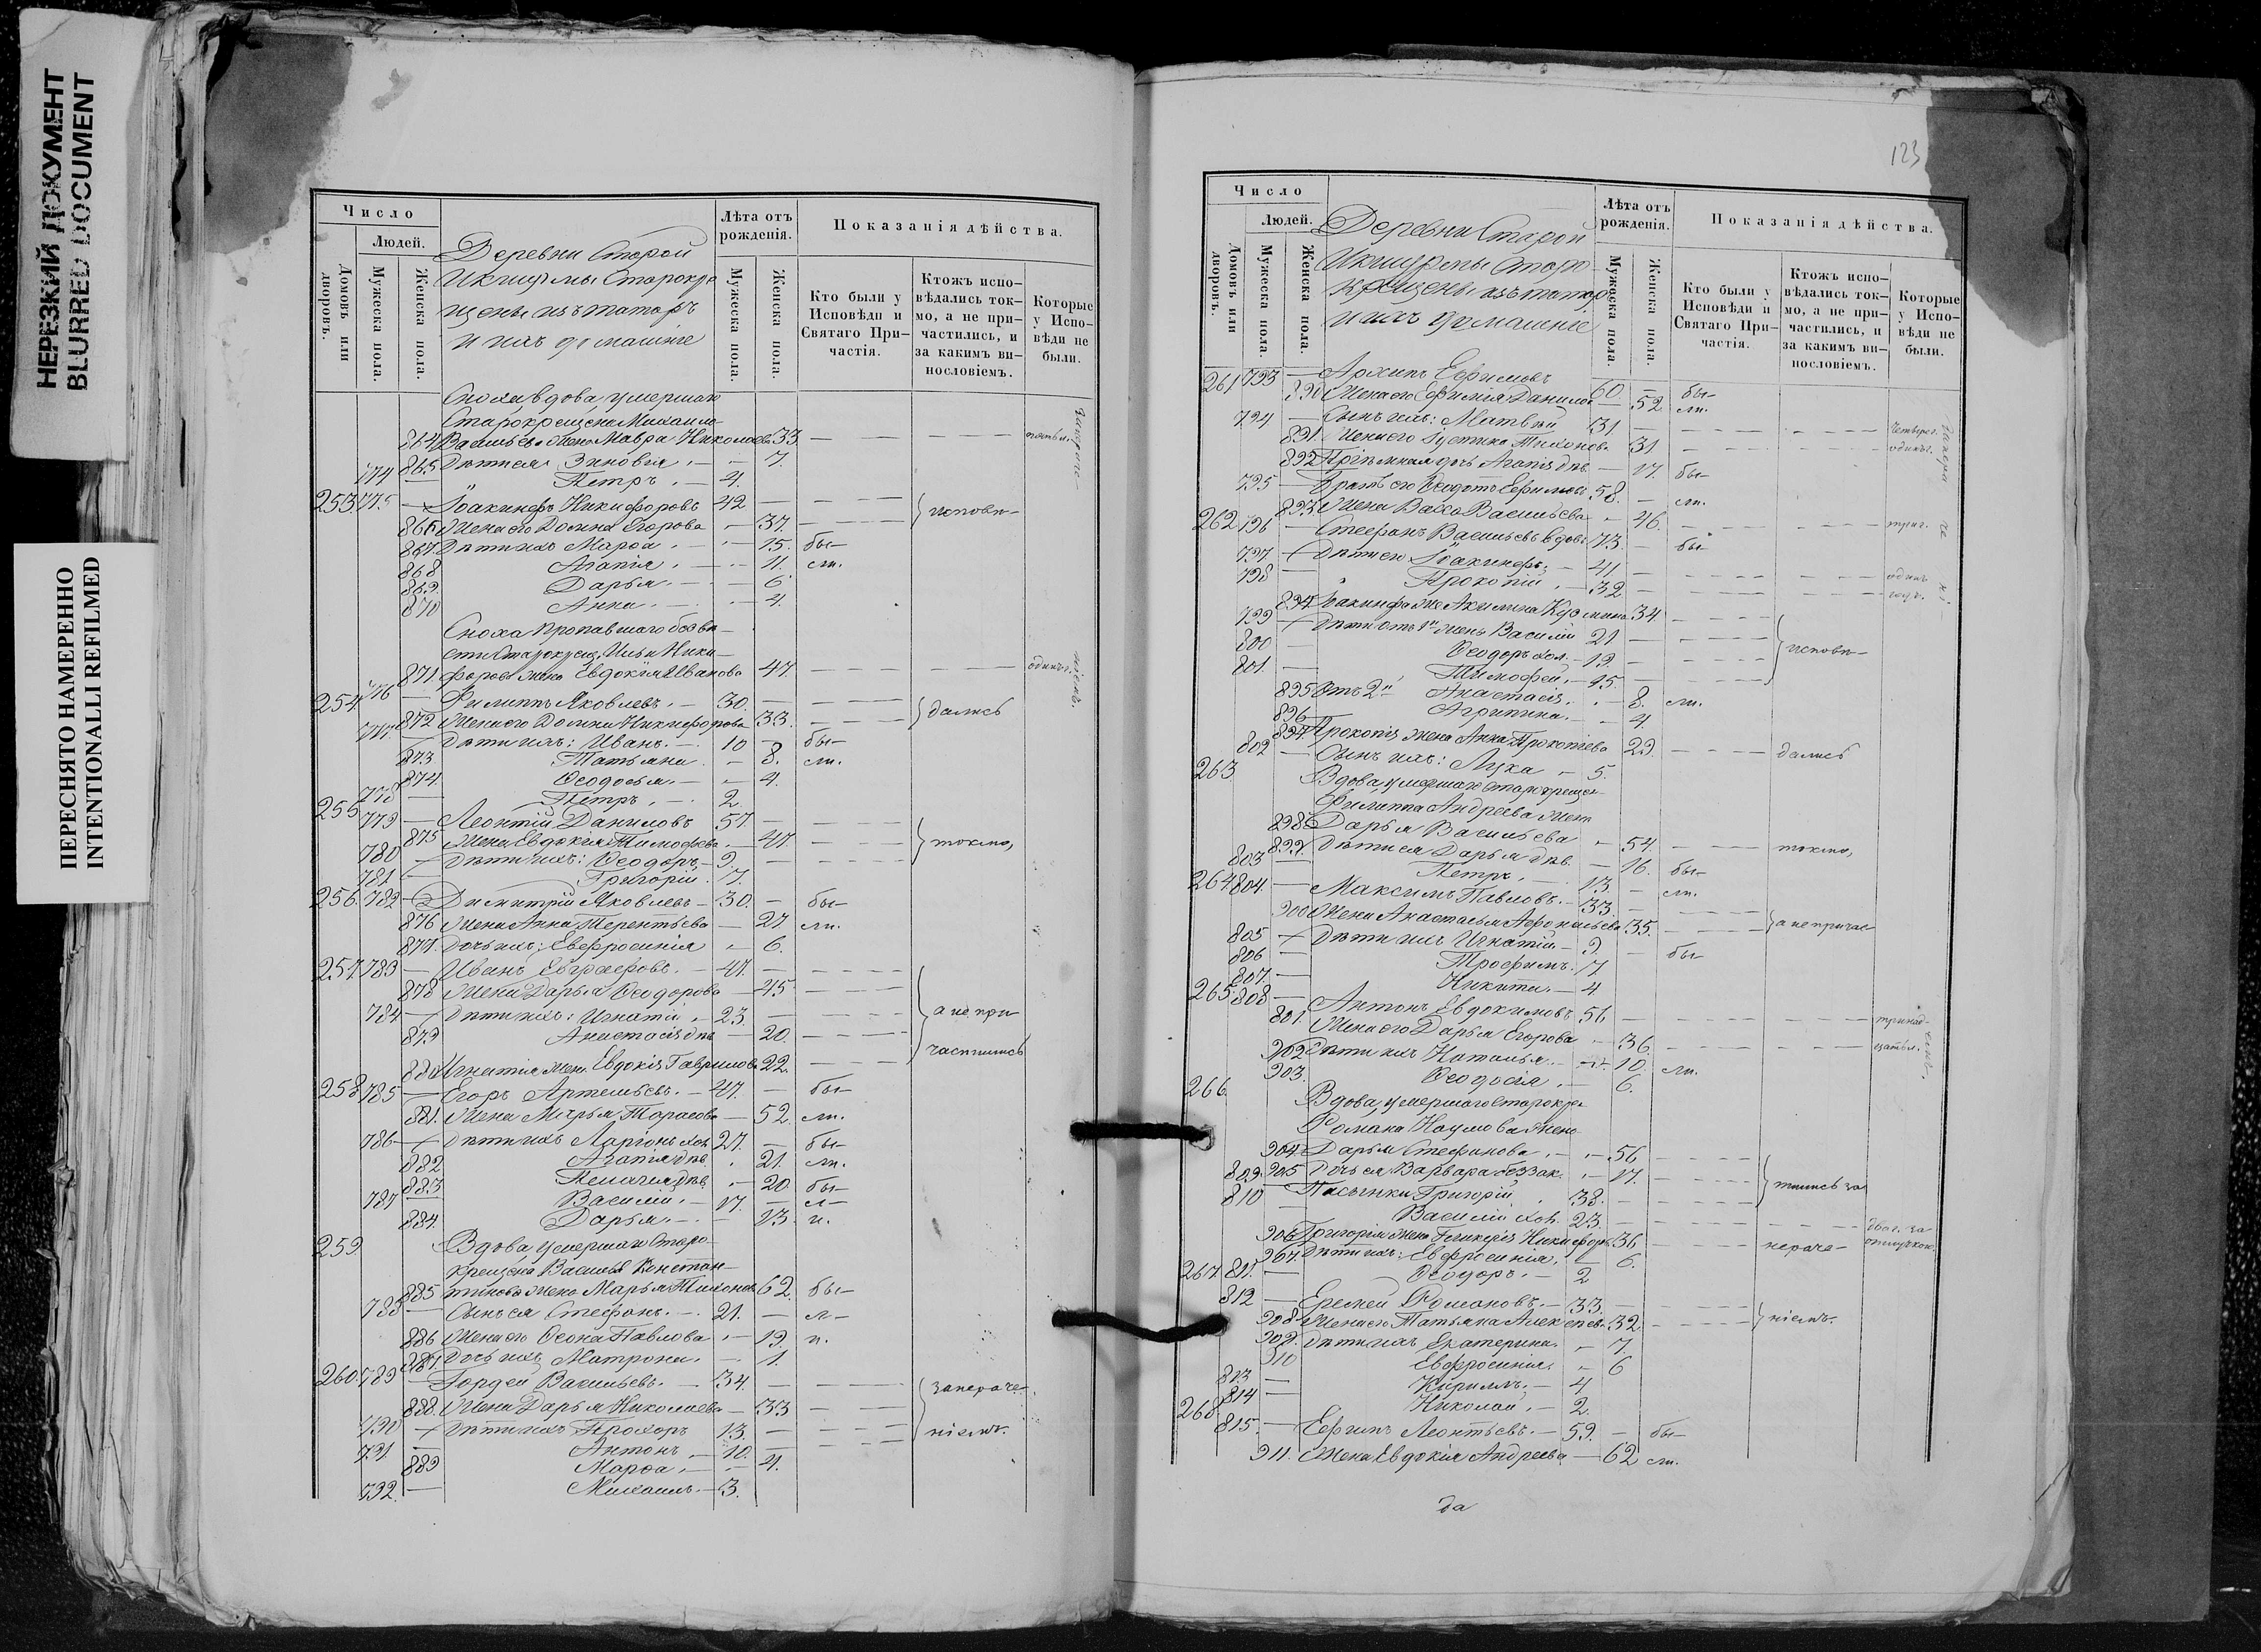 НЕРЕЗКИЙ ДОКУМЕНТ
BLURRED DOCUMENT
ПЕРЕСНЯТО НАМЕРЕННО
INTENTIONALLI REFILMED
Число
Людей.
Домовъ или дворовъ.
Мужеска пола.
Женска пола.
Деревни Старой
Икшурмы Старокре
щены изъ татаръ
и ихъ домашніе
Лѣта отъ рожденія.
Мужеска пола.
Женска пола.
Показанія дѣйства.
Кто были у Исповѣди и Святаго Причастія.
Ктожъ исповѣдались токмо, а не причастились, и за какимъ винословіемъ.
Которые у Исповѣди не были.
Сноха вдова, умершаго
Старокрещена Михаила
864 Васильева жена Мавра Николаева 33
865 Дѣти ея: Зиновія 7.
774 Петръ 4.
253 775 Іоакинфъ Никифоровъ 42 исповѣ-
866 Жена его Домна Егорова 37.
867 Дѣти ихъ Марѳа 15. бы-
868 Агапія 11. ли.
869 Дарья 6.
870 Анна 4.
Сноха пропавшаго безвѣ-
сти Старокрещ. Ильи Ники-
871 форова жена Евдокія Иванова 47.
254 776 Филиппъ Яковлевъ 30. дались
872 Жена его Домна Никифорова 33.
777 Дѣти ихъ: Иванъ 10 бы-
873 Татьяна 8. ли.
874 Ѳеодосья 4.
778 Петръ 2
255 779 Леонтій Даниловъ 57. токмо,
875 Жена Евдокія Тимофѣева 47.
780 Дѣти ихъ: Ѳеодоръ 9.
781 Григорій 7.
256 782 Димитрій Яковлевъ 30. бы-
876 Жена Анна Терентьева 27 ли.
877 Дочь ихъ: Евфросинія 6.
257 783 Иванъ Евграфовъ 47.
878 Жена Дарья Ѳеодорова 45
784 Дѣти ихъ: Игнатій 23. а не при
879 Анастасія дѣв. 20. частились
880 Игнатія жена Евдокія Гаврилова 22.
258 785 Егоръ Артемьевъ 47. бы-
881 Жена Марья Тарасова 52. ли.
786 Дѣти ихъ Ларіонъ хол. 27. бы-
882 Агапія дѣв. 21. ли.
883 Пелагія дѣв. 20 бы-
787 Василій 17. л-
884 Дарья 13. и.
259 Вдова, умершаго Старо-
крещена Василья Констан-
885 тинова жена Марья Тихонова 62. бы-
788 Сынъ ея Стефанъ 21. л-
886 Жена его Ѳеона Павлова 19. и.
887 Дочь ихъ Матрона 1.
260 789 Гордей Васильевъ 34. за нераче-
888 Жена Дарья Николаева 33
790 Дѣти ихъ Прохоръ 13. ніемъ.
791 Антонъ 10.
889 Марѳа 4.
792 Михаилъ 3.
123
Число
Людей.
Домовъ или дворовъ.
Мужеска пола.
Женска пола.
Деревни Старой
Икшурмы Старо
крещены изъ татаръ
и ихъ домашніе
Лѣта отъ рожденія.
Мужеска пола
Женска пола.
Показанія дѣйства.
Кто были у Исповѣди и Святаго Причастія.
Ктожъ исповѣдались токмо, а не причастились, и за какимъ винословіемъ.
Которые у Исповѣди не были.
261 793 Архипъ Ефимовъ 60. бы-
890 Жена его Ефимія Данилова 52. ли.
794 Сынъ ихъ: Матвѣй 31
891 Жена его Іустина Тихонова 31
892 Пріемная дочь Агапія дѣв. 17. бы-
795 Братъ его Ѳеодотъ Ефимовъ 58. ли.
893 Жена Васса Васильева 46.
262 796 Стефанъ Васильевъ вдовъ 73. бы-
797 Дѣти его Іоакинфъ 41
798 Прокопій 32
894 Іоакинфа же Акилина Кузмина 34
799 Дѣти отъ 1й жены Василій 21
800 Ѳеодоръ хол. 19. исповѣ-
801 Тимофей 15.
895 Отъ 2й Анастасія 8. ли.
896 Агрипина 4
897 Прокопія жена Анна Прокопіева 29 дались
802 Сынъ ихъ: Лука 5.
263 Вдова, умершаго старокрещен
Филиппа Андреева жена
898 Дарья Васильева 54. токмо,
899 Дѣти ея Дарья дѣв. 16. бы-
803 Петръ 13. ли.
264 804 Максимъ Павловъ 33
900 Жена Анастасья Аѳонасьева 35. а не причас
805 Дѣти ихъ Игнатій 9. бы-
806 Трофимъ 7
807 Никита 4
265 808 Антонъ Евдокимовъ 56 тринад-
801 Жена его Дарья Егорова 36. цатый.
902 Дѣти ихъ Наталья 10. ли.
903 Ѳеодосія 6.
266 Вдова, умершаго старокре
Романа Наумова жена
904 Дарья Стефанова 56
809 905 Дочь ея Варвара беззак. 17.
810 Пасынки Григорій 38. тились за
Василій хол. 23.
906 Григорія жена Гликерія Никифор. 36 нераче-
907 Дѣти ихъ: Евфросинія 6.
267 811 Ѳеодоръ 2
812 Еремей Романовъ 33.
908 Жена его Татьяна Алексѣев. 32. ніемъ.
909 Дѣти ихъ Екатерина 7.
910 Евфросинія 6
813 Кириллъ 4
814 Николай 2.
268 815 Ефимъ Леонтьевъ 59. бы-
911 Жена Евдокія Андреева 62 ли.
да